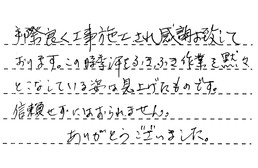 手際良く工事施工され感謝致して
おります。この時季汗をふきふき作業を黙々
とこなしている姿は見上げたものです。
信頼せずにはおられません。
ありがとうございました。